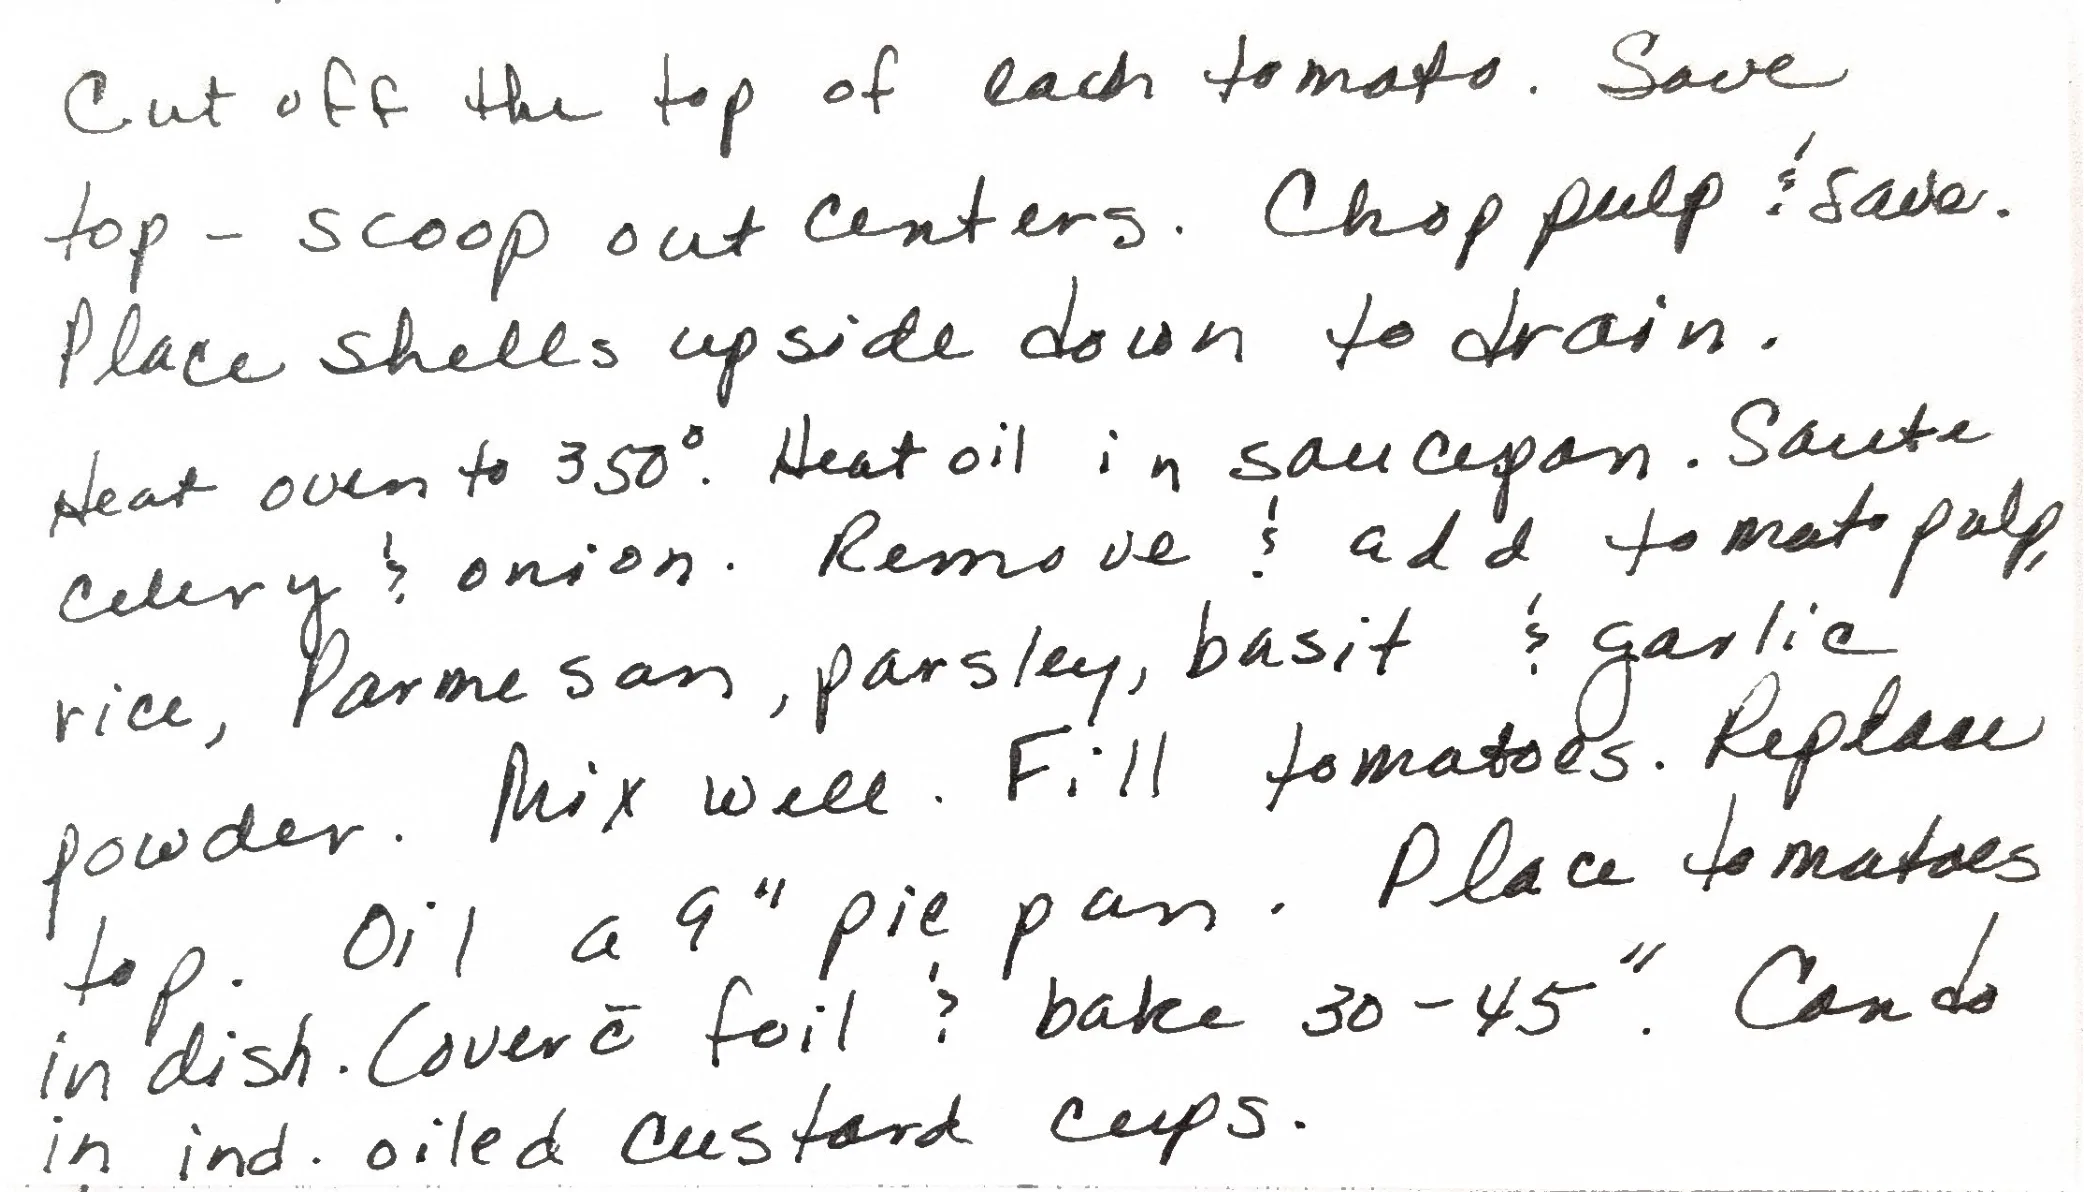 Cut off the top of each tomato. Save
top - scoop out centers. Chop pulp & save.
Place shells upside down to drain.
Heat oven to 350°. Heat oil in saucepan. Saute
celery & onion. Remove & add tomato pulp,
rice, Parmesan, parsley, basit & garlic
powder. Mix well. Fill tomatoes. Replace
top. Oil a 9" pie pan. Place tomatoes
in dish. Cover c̄ foil & bake 30-45". Can do
in ind. oiled custard cups.